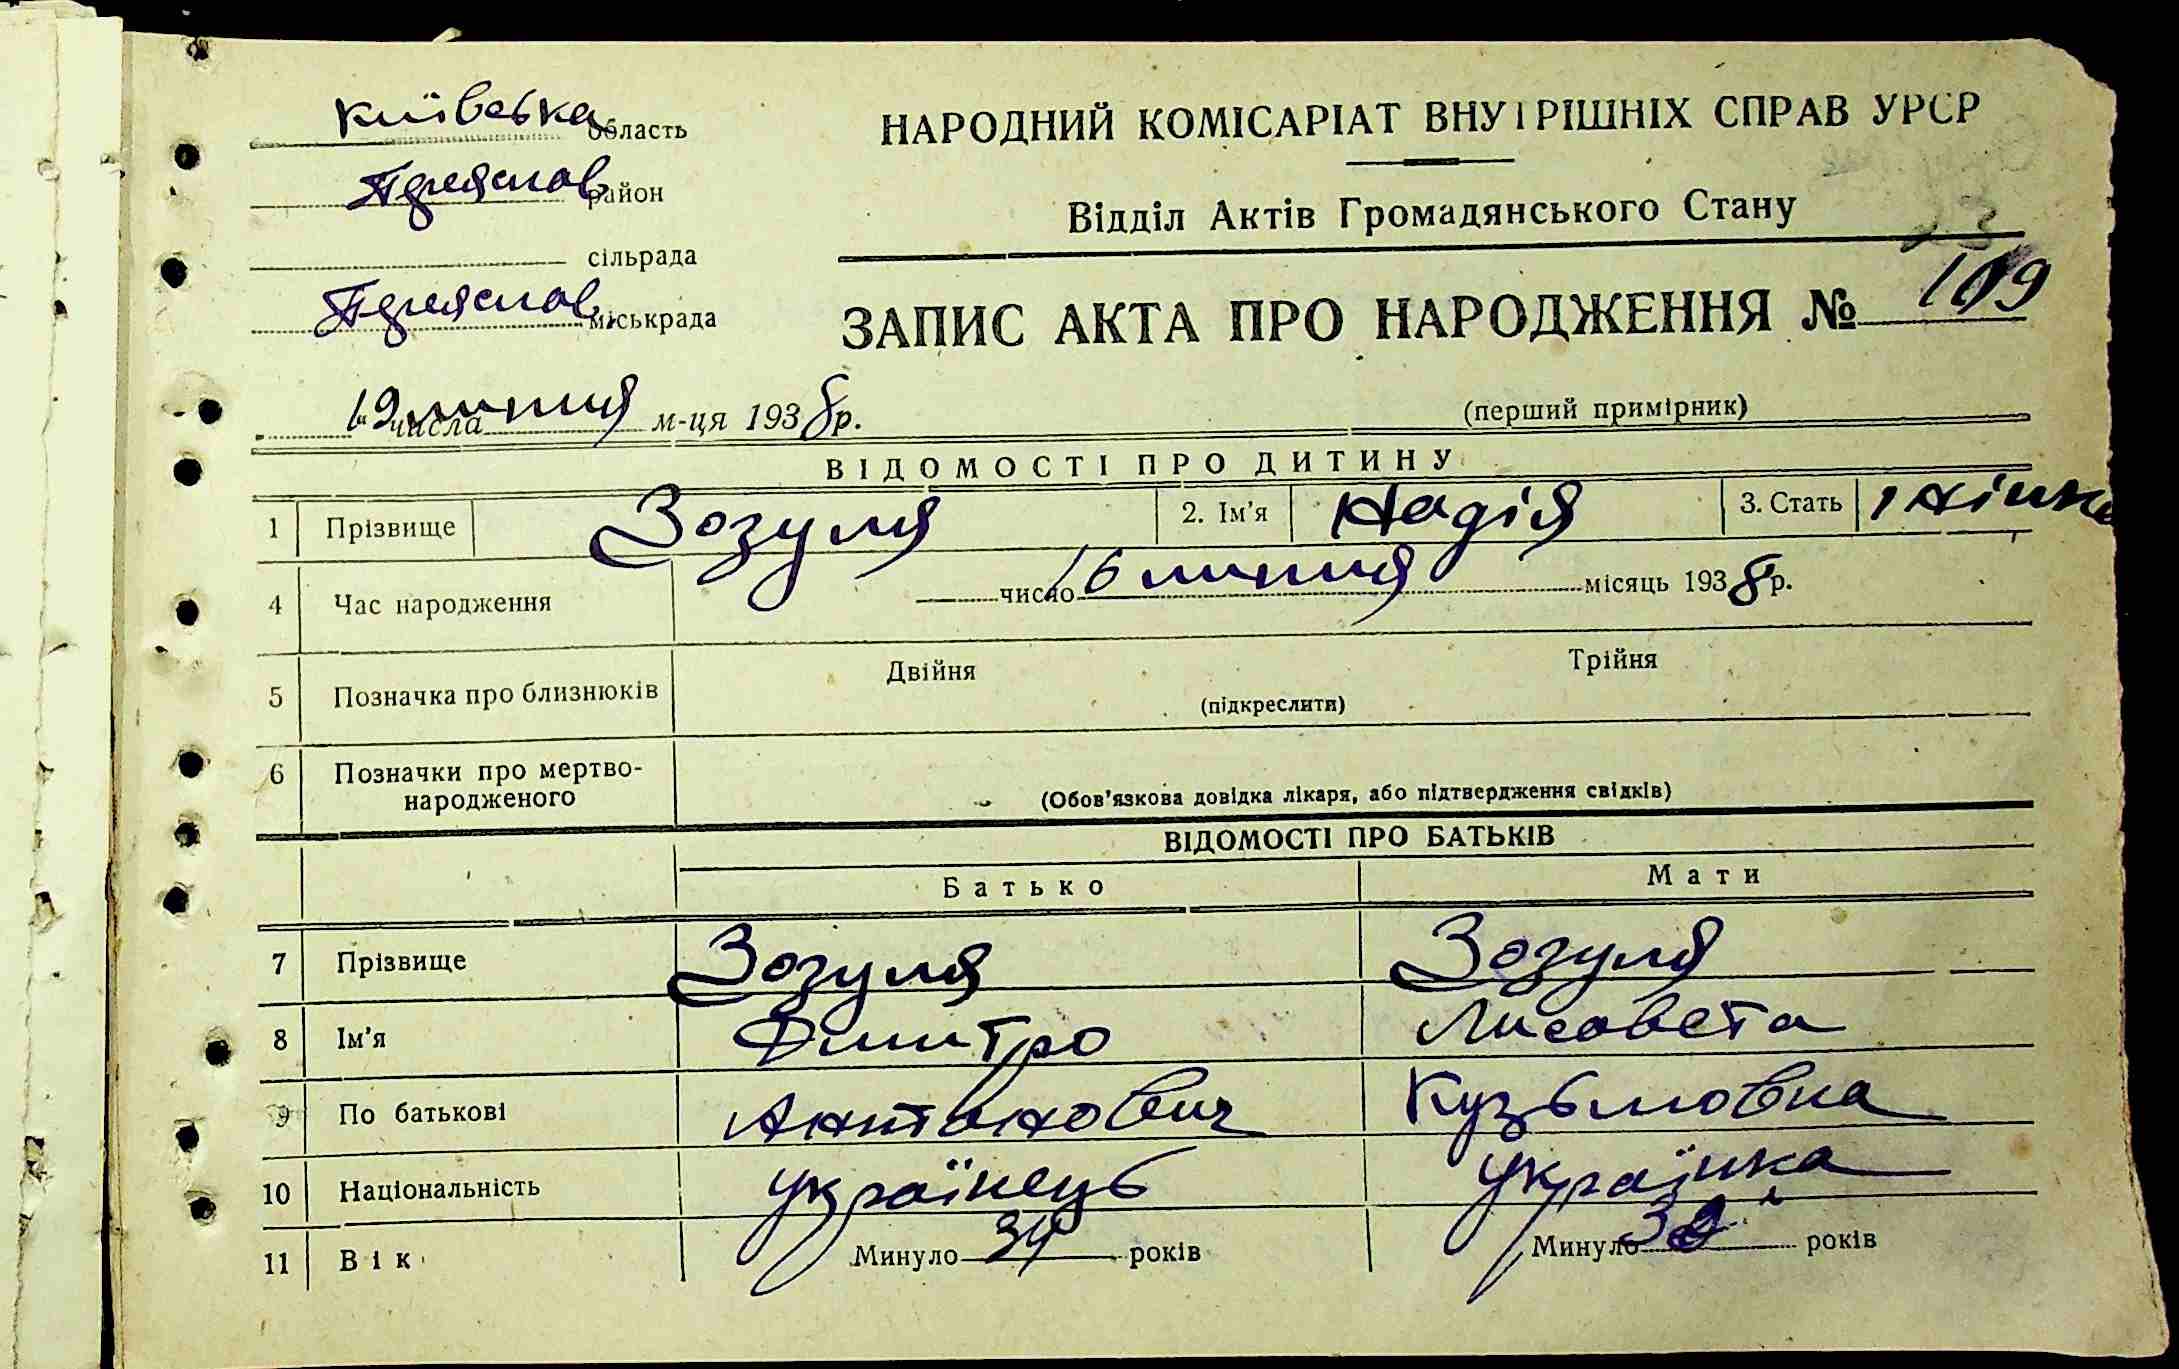 Київська область
НАРОДНИЙ КОМІСАРІАТ ВНУТРІШНІХ СПРАВ УРСР
Переяслав район
Відділ Актів Громадянського Стану
сільрада
Переяслав міськрада
ЗАПИС АКТА ПРО НАРОДЖЕННЯ № 109
19 числа липня м-ця 1938 р.
(перший примірник)
ВІДОМОСТІ ПРО ДИТИНУ
1 Прізвище Зозуля 2. Ім'я Надія 3. Стать
4 Час народження число 16 липня місяць 1938 р.
5 Позначка про близнюків Двійня Трійня
(підкреслити)
6 Позначки про мертво-
народженого
(Обов'язкова довідка лікаря, або підтвердження свідків)
ВІДОМОСТІ ПРО БАТЬКІВ
Батько Мати
7 Прізвище Зозуля Зозуля
8 Ім'я Дмитро Лисовета
9 По батькові Антонович Кузьмовна
10 Національність українець українка
11 Вік Минуло 34 років Минуло років